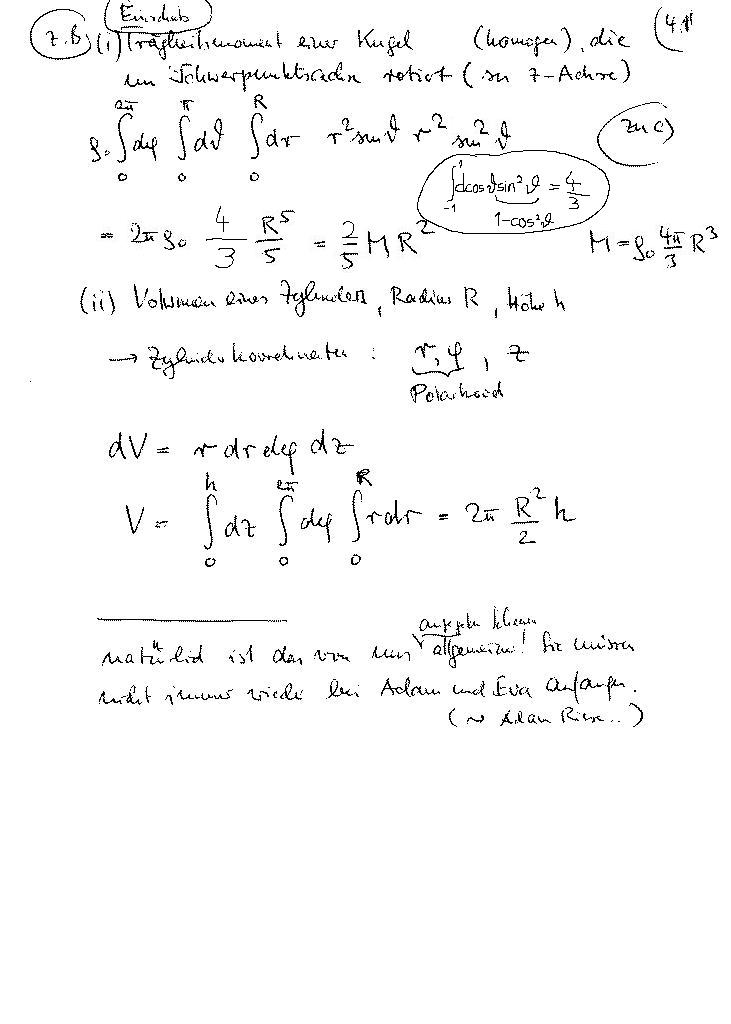 Einschub
z.B. (i) Trägheitsmoment einer Kugel (homogen), die (4.
um Schwerpunktsachse rotiert ( z-Achse)
ρ₀ ∫₀^{2π} dφ ∫₀^{π} dϑ ∫₀^{R} dr r² sin ϑ r² sin² ϑ zu c)
∫₋₁^{1} dcos ϑ sin² ϑ = 4/3
1-cos² ϑ
= 2π ρ₀ 4/3 R⁵/5 = 2/5 M R² M = ρ₀ 4π/3 R³
(ii) Volumen eines Zylinders, Radius R, Höhe h
→ Zylinderkoordinaten : r, φ, z
Polarkoord
dV = r dr dφ dz
V = ∫₀^{h} dz ∫₀^{2π} dφ ∫₀^{R} r dr = 2π R²/2 h
natürlich ist das von uns allgemein! Sie müssen
nicht immer wieder bei Adam und Eva anfangen.
(~ Adam Riese..)